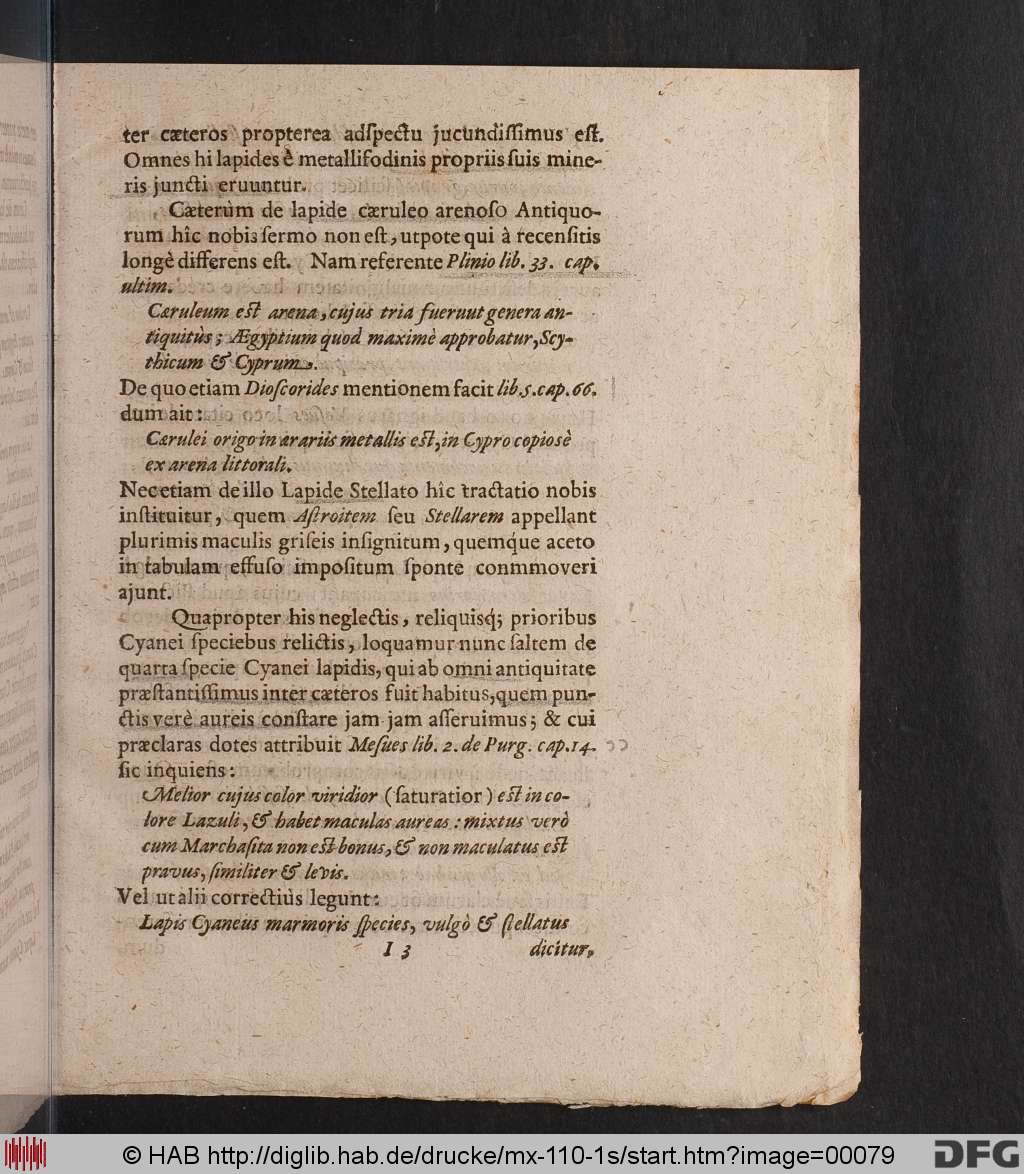 ter cæteros propterea adſpectu jucundiſſimus eſt.
Omnes hi lapides è metallifodinis propriis ſuis mine-
ris juncti eruuntur.
Cæterùm de lapide cæruleo arenoſo Antiquo-
rum hîc nobis ſermo non eſt, utpote qui à recenſitis
longè differens eſt. Nam referente Plinio lib. 33. cap.
ultim.
Cæruleum est arena, cujus tria fuerunt genera an-
tiquitùs; Ægyptium quod maximè approbatur, Scy-
thicum & Cyprum.
De quo etiam Dioſcorides mentionem facit lib. 5. cap. 66.
dum ait:
Cærulei origo in ærariis metallis est, in Cypro copiosè
ex arena littorali.
Nec etiam de illo Lapide Stellato hîc tractatio nobis
inſtituitur, quem Aſtroitem ſeu Stellarem appellant
plurimis maculis griſeis inſignitum, quemq́ue aceto
in tabulam effuſo impoſitum ſponte conmmoveri
ajunt.
Quapropter his neglectis, reliquisq́; prioribus
Cyanei ſpeciebus relictis, loquamur nunc ſaltem de
quarta ſpecie Cyanei lapidis, qui ab omni antiquitate
præſtantiſſimus inter cæteros fuit habitus, quem pun-
ctis verè aureis conſtare jam jam aſſeruimus; & cui
præclaras dotes attribuit Meſues lib. 2. de Purg. cap. 14.
ſic inquiens:
Melior cujus color viridior (ſaturatior) est in co-
lore Lazuli, & habet maculas aureas: mixtus verò
cum Marchaſita non est bonus, & non maculatus est
pravus, ſimiliter & levis.
Vel ut alii correctiùs legunt:
Lapis Cyaneus marmoris ſpecies, vulgò & ſtellatus
I 3 dicitur,
© HAB http://diglib.hab.de/drucke/mx-110-1s/start.htm?image=00079
DFG